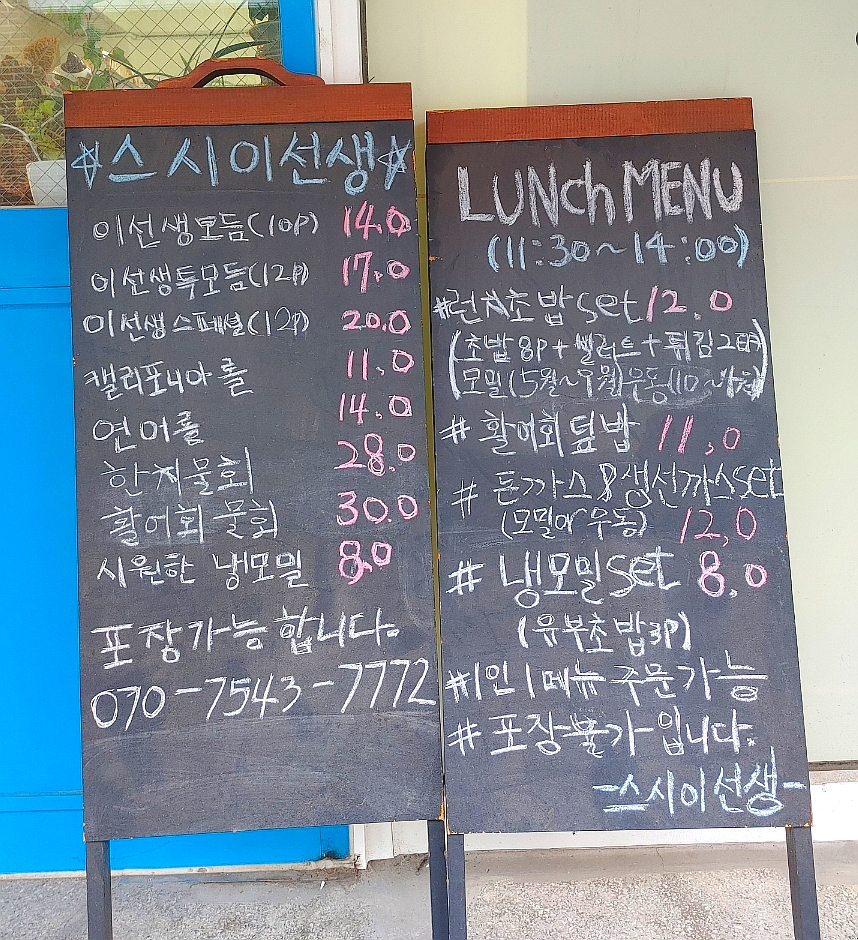 ☆스시이선생☆
이선생모듬(10P) 14.0
이선생특모듬(12P) 17.0
이선생스페셜(12P) 20.0
캘리포니아롤 11.0
연어롤 14.0
한치물회 28.0
활어회 물회 30.0
시원한 냉모밀 8.0
포장가능합니다.
070-7543-7772
LUNch MENU
(11:30~14:00)
#런치초밥set 12.0
(초밥 8P + 샐러드 + 튀김 2피
모밀(5월~9월)우동(10~4월))
# 활어회덮밥 11.0
# 돈까스&생선까스set
(모밀or우동) 12.0
# 냉모밀set 8.0
(유부초밥3P)
#1인 1메뉴 주문가능
# 포장불가입니다.
-스시이선생-